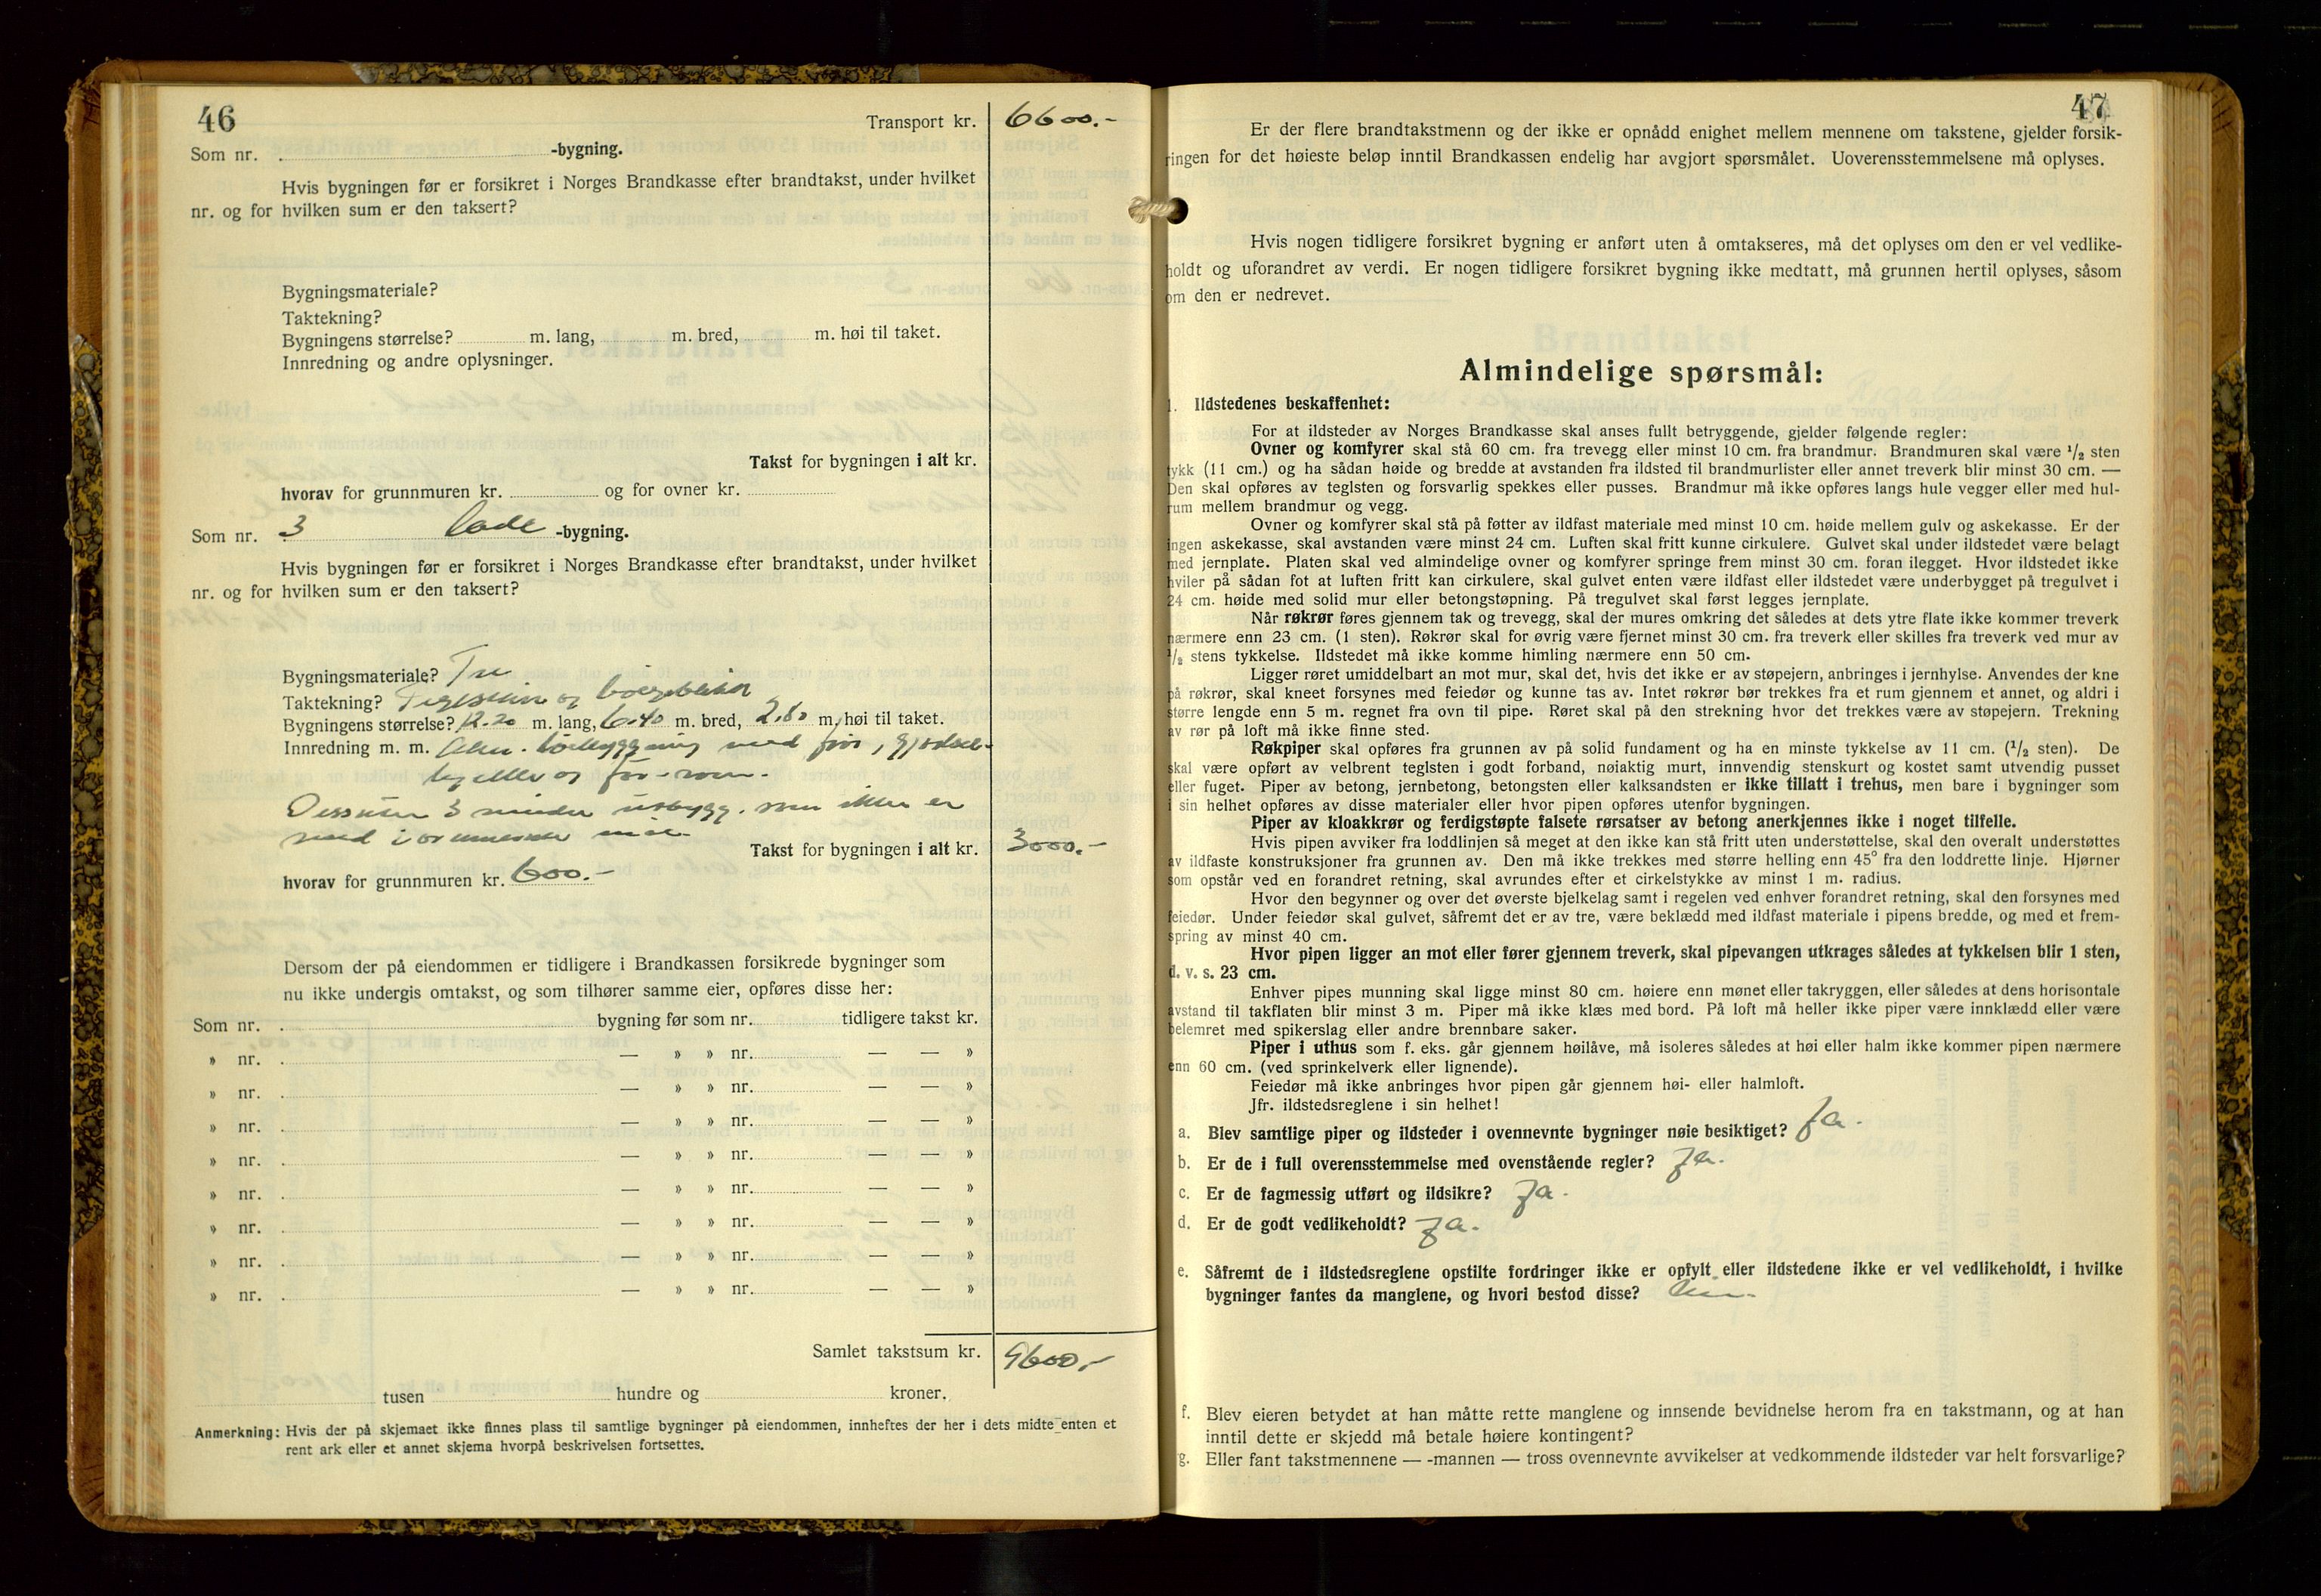 46
Transport kr. 6600.-
Som nr. -bygning.
Hvis bygningen før er forsikret i Norges Brandkasse efter brandtakst, under hvilket
nr. og for hvilken sum er den taksert?
Bygningsmateriale?
Taktekning?
Bygningens størrelse? m. lang, m. bred, m. høi til taket.
Innredning og andre oplysninger.
Takst for bygningen i alt kr.
hvorav for grunnmuren kr. og for ovner kr.
Som nr. 3 lade -bygning.
Hvis bygningen før er forsikret i Norges Brandkasse efter brandtakst, under hvilket
nr. og for hvilken sum er den taksert?
Bygningsmateriale? Tre
Taktekning? Teglstein og bølgeblikk
Bygningens størrelse? 12.20 m. lang, 6.40 m. bred, 2.80 m. høi til taket.
Innredning m. m. Alm. med fjøs, gjødsel-
kjeller og för-rom.
Dessuten 3 mindre utbygg. som ikke er
med i mål.
Takst for bygningen i alt kr. 3000.-
hvorav for grunnmuren kr. 600.-
Dersom der på eiendommen er tidligere i Brandkassen forsikrede bygninger som
nu ikke undergis omtakst, og som tilhører samme eier, opføres disse her:
Som nr. bygning før som nr. tidligere takst kr.
» nr. — » » nr. — — »
» nr. — » » nr. — — »
» nr. — » » nr. — — »
» nr. — » » nr. — — »
» nr. — » » nr. — — »
» nr. — » » nr. — — »
» nr. — » » nr. — — »
» nr. — » » nr. — — »
Samlet takstsum kr. 9600.-
tusen hundre og kroner.
Anmerkning: Hvis der på skjemaet ikke finnes plass til samtlige bygninger på eiendommen, innheftes der her i dets midte enten et
rent ark eller et annet skjema hvorpå beskrivelsen fortsettes.
47
Er der flere brandtakstmenn og der ikke er opnådd enighet mellem mennene om takstene, gjelder forsik-
ringen for det høieste beløp inntil Brandkassen endelig har avgjort spørsmålet. Uoverensstemmelsene må oplyses.
Hvis nogen tidligere forsikret bygning er anført uten å omtakseres, må det oplyses om den er vel vedlike-
holdt og uforandret av verdi. Er nogen tidligere forsikret bygning ikke medtatt, må grunnen hertil oplyses, såsom
om den er nedrevet.
Almindelige spørsmål:
1. Ildstedenes beskaffenhet:
For at ildsteder av Norges Brandkasse skal anses fullt betryggende, gjelder følgende regler:
Ovner og komfyrer skal stå 60 cm. fra trevegg eller minst 10 cm. fra brandmur. Brandmuren skal være 1/2 sten
tykk (11 cm.) og ha sådan høide og bredde at avstanden fra ildsted til brandmurlister eller annet treverk blir minst 30 cm. —
Den skal opføres av teglsten og forsvarlig spekkes eller pusses. Brandmur må ikke opføres langs hule vegger eller med hul-
rum mellem brandmur og vegg.
Ovner og komfyrer skal stå på føtter av ildfast materiale med minst 10 cm. høide mellem gulv og askekasse. Er der
ingen askekasse, skal avstanden være minst 24 cm. Luften skal fritt kunne cirkulere. Gulvet skal under ildstedet være belagt
med jernplate. Platen skal ved almindelige ovner og komfyrer springe frem minst 30 cm. foran ilegget. Hvor ildstedet ikke
hviler på sådan fot at luften fritt kan cirkulere, skal gulvet enten være ildfast eller ildstedet være underbygget på tregulvet i
24 cm. høide med solid mur eller betongstøpning. På tregulvet skal først legges jernplate.
Når røkrør føres gjennem tak og trevegg, skal der mures omkring det således at dets ytre flate ikke kommer treverk
nærmere enn 23 cm. (1 sten). Røkrør skal for øvrig være fjernet minst 30 cm. fra treverk eller skilles fra treverk ved mur av
1/2 stens tykkelse. Ildstedet må ikke komme himling nærmere enn 50 cm.
Ligger røret umiddelbart an mot mur, skal det, hvis det ikke er av støpejern, anbringes i jernhylse. Anvendes der kne
på røkrør, skal kneet forsynes med feiedør og kunne tas av. Intet røkrør bør trekkes fra et rum gjennem et annet, og aldri i
større lengde enn 5 m. regnet fra ovn til pipe. Røret skal på den strekning hvor det trekkes være av støpejern. Trekning
av rør på loft må ikke finne sted.
Røkpiper skal opføres fra grunnen av på solid fundament og ha en minste tykkelse av 11 cm. (1/2 sten). De
skal være opført av velbrent teglsten i godt forband, nøiaktig murt, innvendig stenskurt og kostet samt utvendig pusset
eller fuget. Piper av betong, jernbetong, betongsten eller kalksandsten er ikke tillatt i trehus, men bare i bygninger som
i sin helhet opføres av disse materialer eller hvor pipen opføres utenfor bygningen.
Piper av kloakkrør og ferdigstøpte falsete rørsatser av betong anerkjennes ikke i noget tilfelle.
Hvis pipen avviker fra loddlinjen så meget at den ikke kan stå fritt uten understøttelse, skal den overalt understøttes
av ildfaste konstruksjoner fra grunnen av. Den må ikke trekkes med større helling enn 45° fra den loddrette linje. Hjørner
som opstår ved en forandret retning, skal avrundes efter et cirkelstykke av minst 1 m. radius.
Hvor den begynner og over det øverste bjelkelag samt i regelen ved enhver forandret retning, skal den forsynes med
feiedør. Under feiedør skal gulvet, såfremt det er av tre, være beklædd med ildfast materiale i pipens bredde, og med et frem-
spring av minst 40 cm.
Hvor pipen ligger an mot eller fører gjennem treverk, skal pipevangen utkrages således at tykkelsen blir 1 sten,
d. v. s. 23 cm.
Enhver pipes munning skal ligge minst 80 cm. høiere enn mønet eller takryggen, eller således at dens horisontale
avstand til takflaten blir minst 3 m. Piper må ikke klæs med bord. På loft må heller ikke piper være innklædd eller være
belemret med spikerslag eller andre brennbare saker.
Piper i uthus som f. eks. går gjennem høilåve, må isoleres således at høi eller halm ikke kommer pipen nærmere
enn 60 cm. (ved sprinkelverk eller lignende).
Feiedør må ikke anbringes hvor pipen går gjennem høi- eller halmloft.
Jfr. ildstedsreglene i sin helhet!
a. Blev samtlige piper og ildsteder i ovennevnte bygninger nøie besiktiget? Ja.
b. Er de i full overensstemmelse med ovenstående regler? Ja.
c. Er de fagmessig utført og ildsikre? Ja.
d. Er de godt vedlikeholdt? Ja.
e. Såfremt de i ildstedsreglene opstilte fordringer ikke er opfylt eller ildstedene ikke er vel vedlikeholdt, i hvilke
bygninger fantes da manglene, og hvori bestod disse?
f. Blev eieren betydet at han måtte rette manglene og innsende bevidnelse herom fra en takstmann, og at han
inntil dette er skjedd må betale høiere kontingent?
g. Eller fant takstmennene — -mannen — tross ovennevnte avvikelser at vedkommende ildsteder var helt forsvarlige?